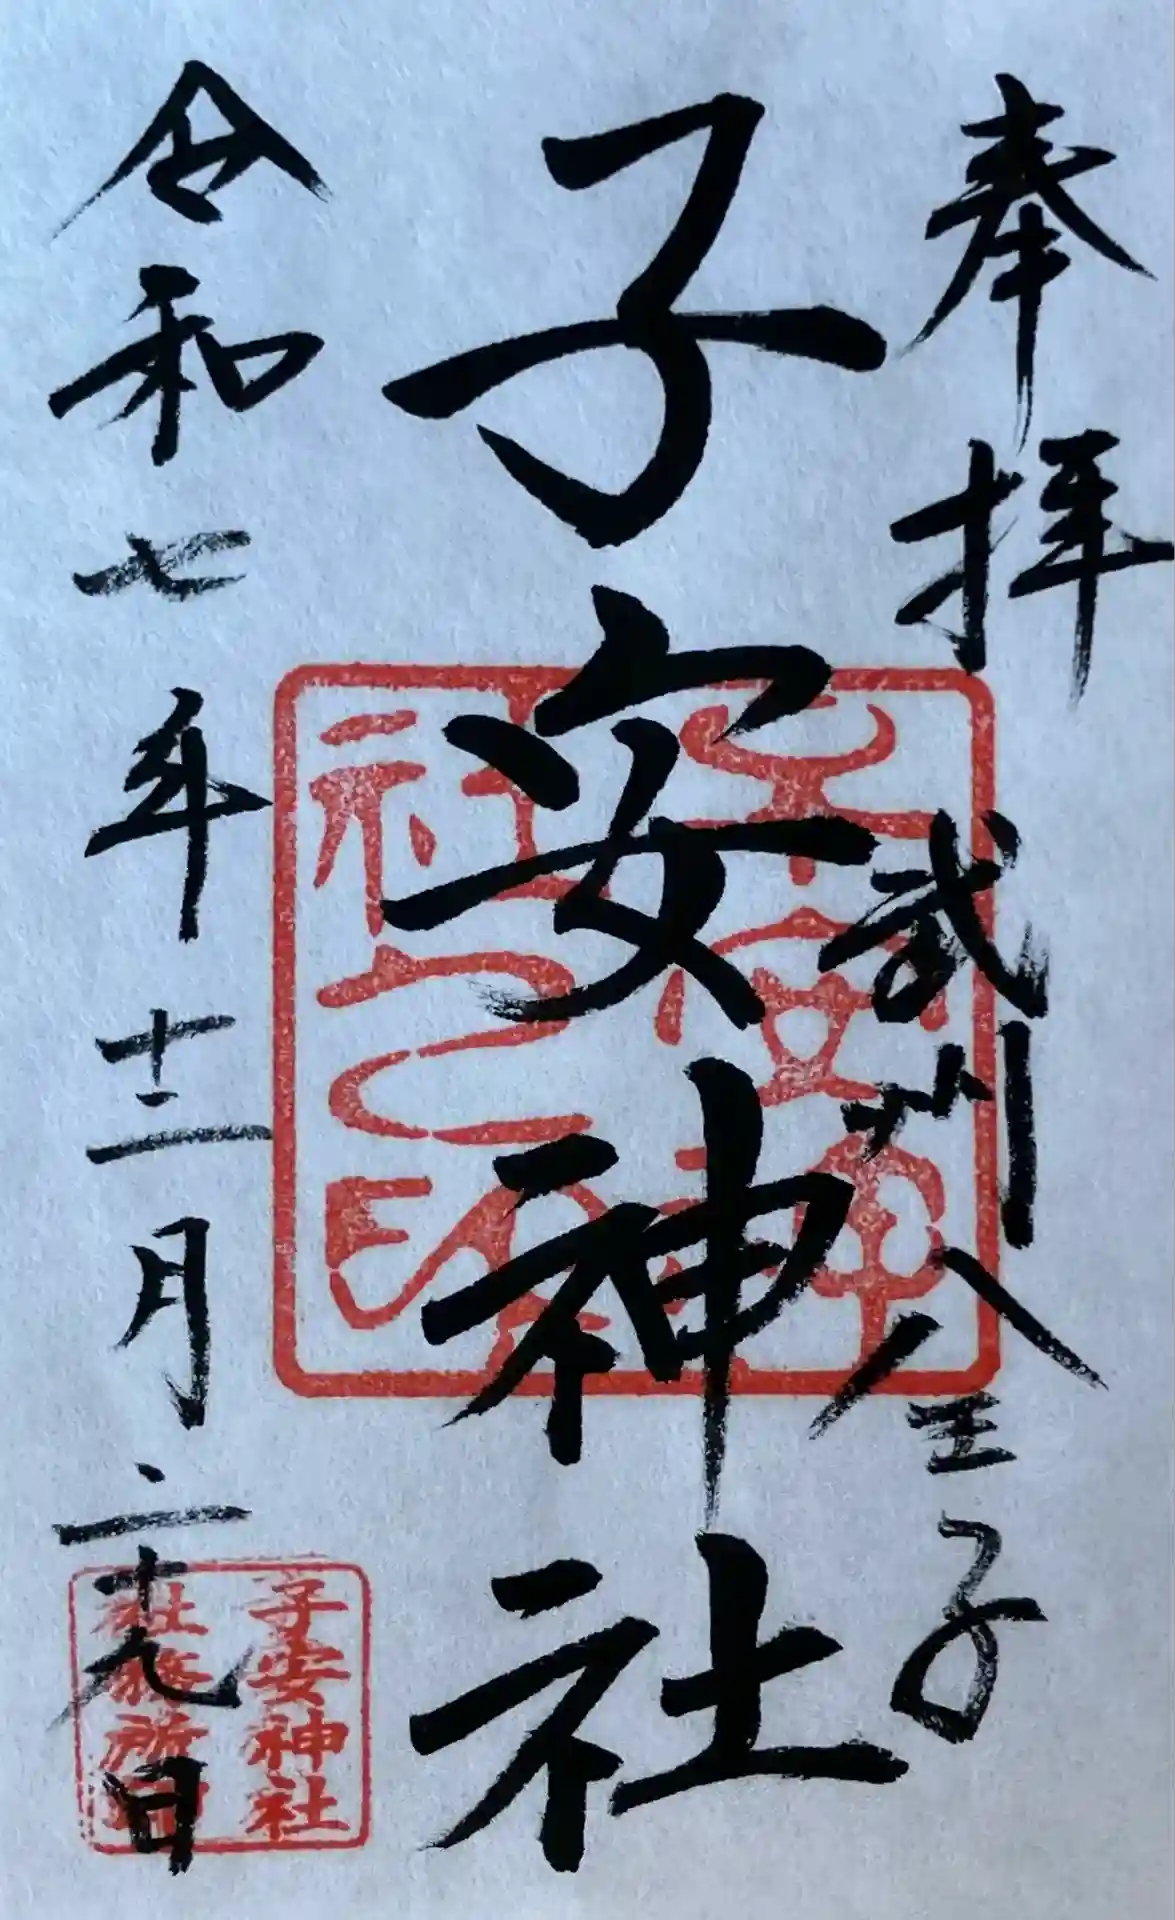 奉拝
武州八王子
子安神社
令和七年十二月二十九日
子安神
社之印
子安神社
社務所印